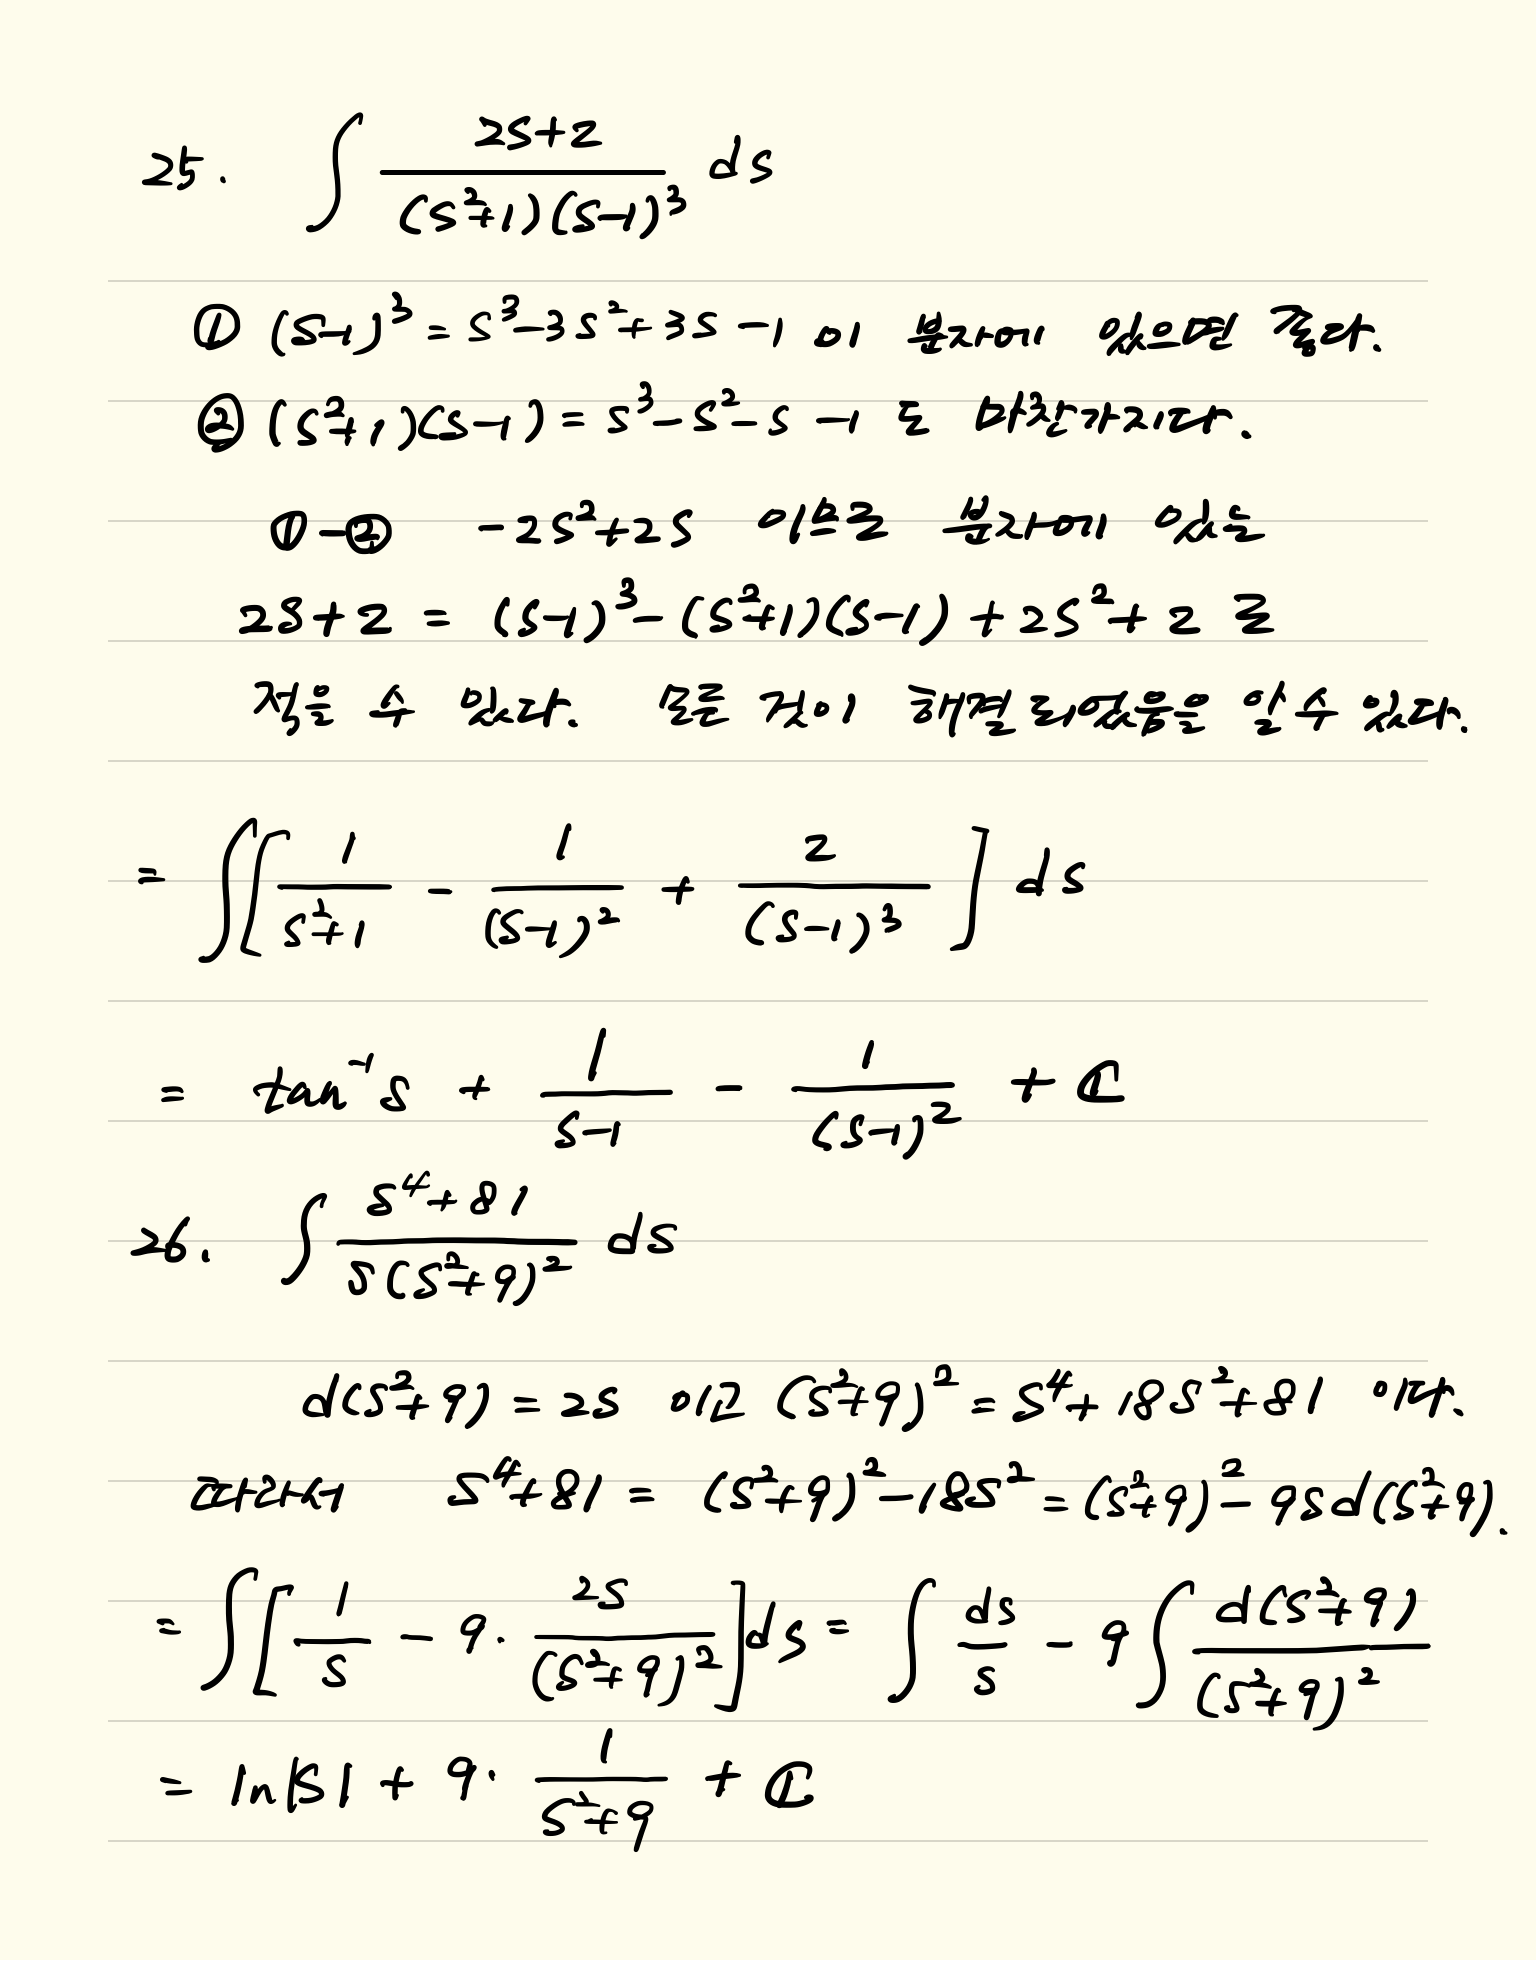 25. ∫ (2s+2)/((s²+1)(s-1)³) ds
① (s-1)³ = s³-3s²+3s-1 이 분자에 있으면 좋다.
② (s²+1)(s-1) = s³-s²-s-1 도 마찬가지다.
①-② -2s²+2s 이므로 분자에 있는
2s+2 = (s-1)³-(s²+1)(s-1)+2s²+2 로
적을 수 있다. 모든 것이 해결되었음을 알 수 있다.
= ∫[1/(s²+1) - 1/(s-1)² + 2/(s-1)³] ds
= tan⁻¹s + 1/(s-1) - 1/(s-1)² + C
26. ∫ (s⁴+81)/(s(s²+9)²) ds
d(s²+9) = 2s 이고 (s²+9)² = s⁴+18s²+81 이다.
따라서 s⁴+81 = (s²+9)²-18s² = (s²+9)²-9sd(s²+9).
= ∫[1/s - 9·2s/(s²+9)²]ds = ∫ds/s - 9∫d(s²+9)/(s²+9)²
= ln|s| + 9·1/(s²+9) + C